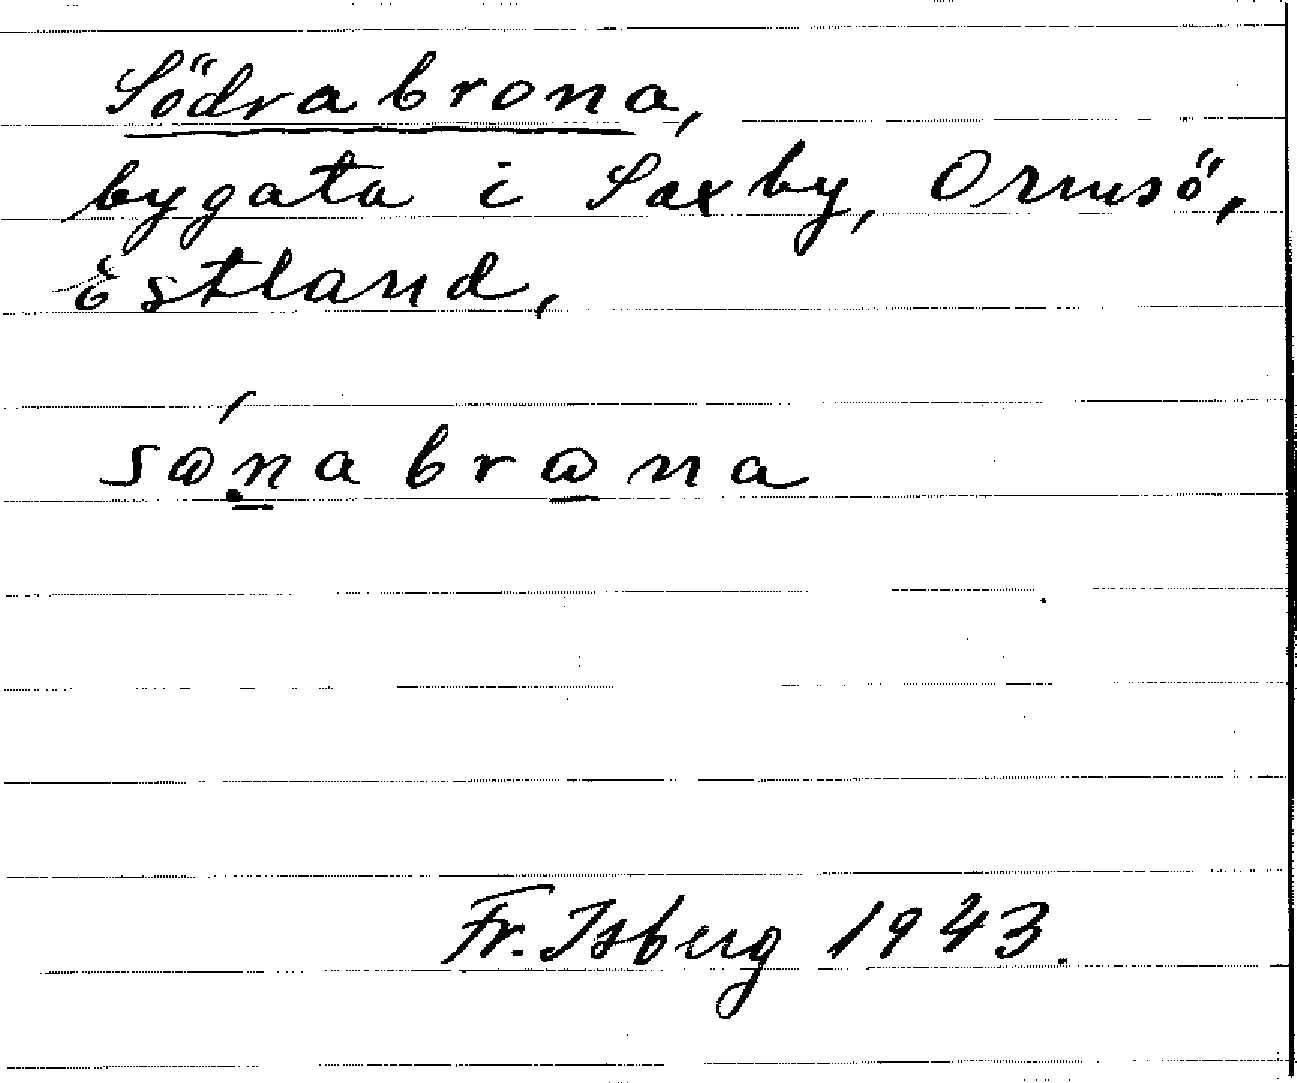 Södrabrona,
bygata i Saxby, Ormsö,
Estland,
sɷ́.n̲abrɷ̲na
Fr. Isberg 1943.